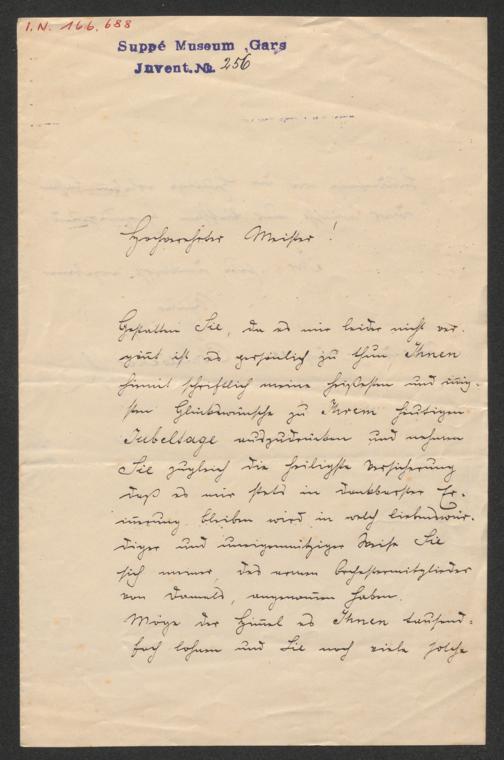 I.N. 166.688
Suppé Museum, Gars
Invent.No. 256
Hochverehrter Meister!
Gestatten Sie, da es mir leider nicht ver-
gönnt ist es persönlich zu thun, Ihnen
hiemit schriftlich meine heißesten und innig-
sten Glückswünsche zu Ihrem heutigen
Jubeltage auszudrücken und nehmen
Sie zugleich die heiligste Versicherung
daß es mir stets in dankbarster Er-
innerung bleiben wird, in welch liebenswür-
diger und uneigennütziger Weise Sie
sich meiner, des armen Orchestermitgliedes
von damals, angenommen haben.
Möge der Himmel es Ihnen tausend-
fach lohnen und Sie noch viele solche